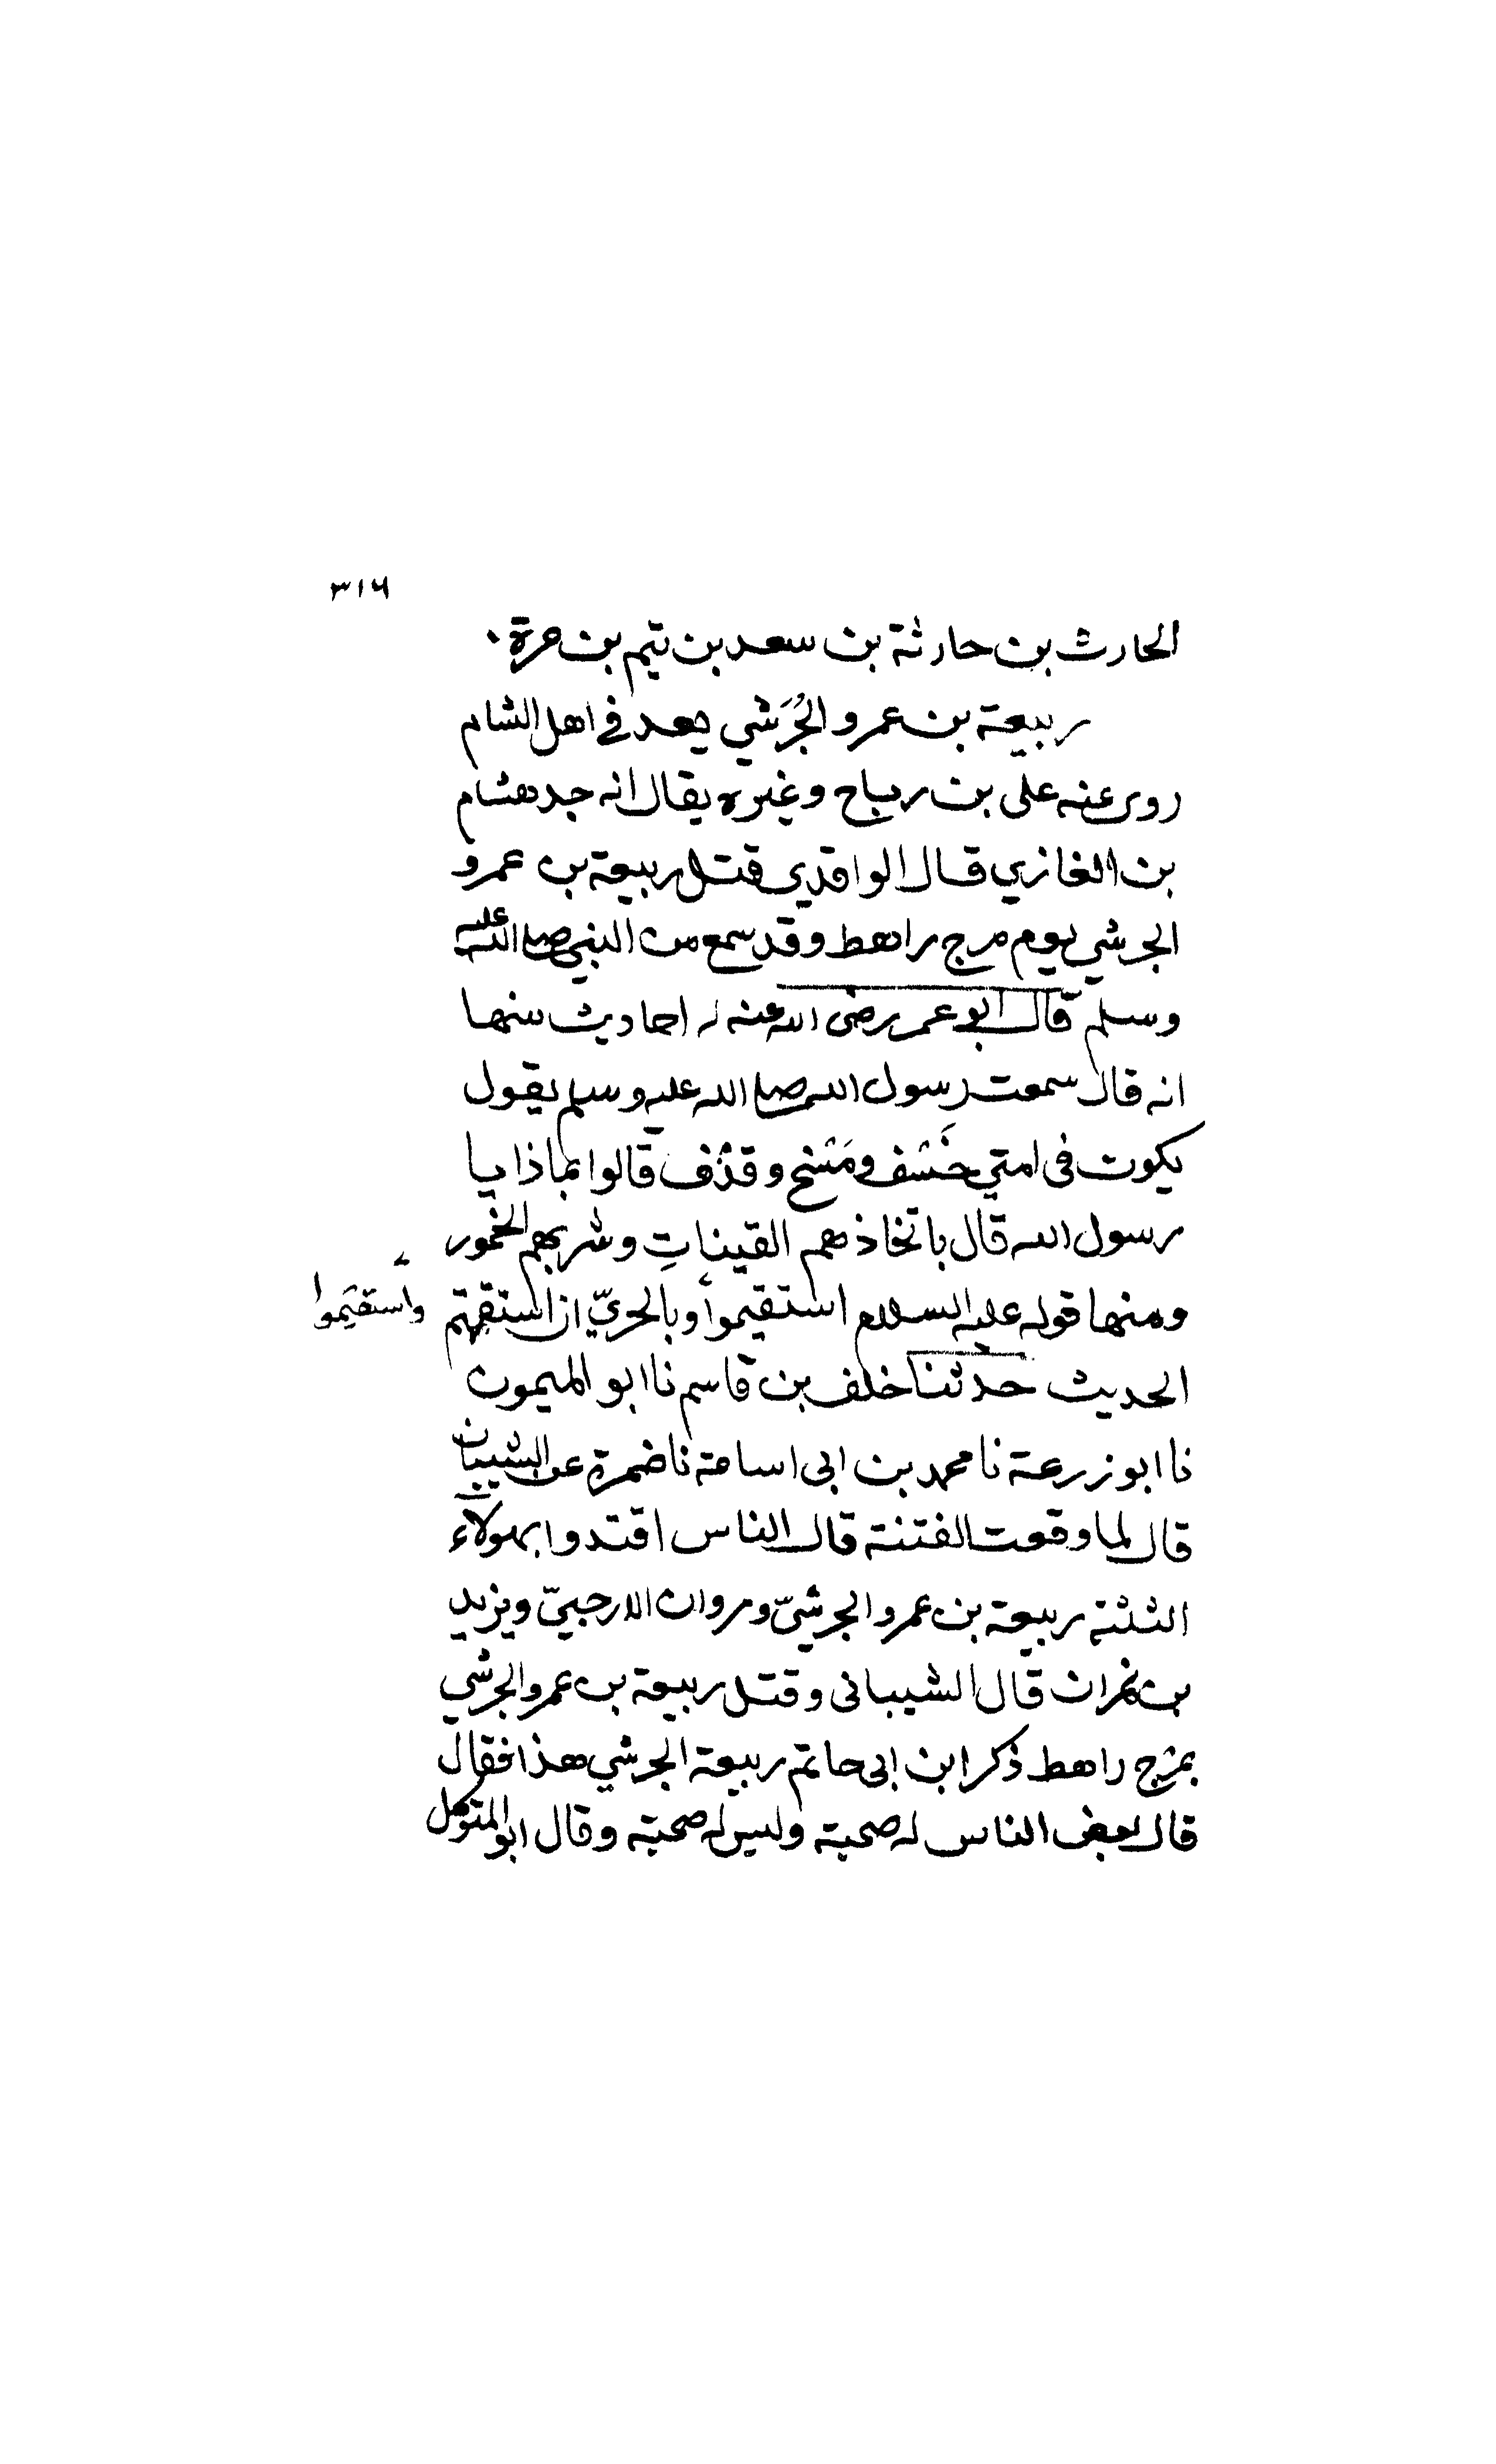 ٣١٦
الحارث بن حارثة بن سعد بن تيم بن مرة .
ربيعة بن عمرو الجُرَشي يعد في اهل الشام
روى عنه على بن رباح وغيره يقال انه جد هشام
بن الغازي قال الواقدي قتل ربيعة بن عمرو
الجرشي يوم مرج راهط وقد سمع من النبي صلى الله عليه
وسلم قال ابو عمر رضى الله عنه له احاديث منها
انه قال سمعت رسول الله صلى الله عليه وسلم يقول
يكون فى امتي خَسْف ومَسْخ وقذْف قالوا بماذا يا
رسول الله قال باتخاذهم القيناتِ وشربهم الخمور
ومنها قوله عليه السلام استقيموا وبالحريّ ان استقمتم
واستقيموا
الحديث حدثنا خلف بن قاسم نا ابو الميمون
نا ابو زرعة نا محمد بن ابى اسامة نا ضمرة عن الشيبان
قال لما وقعت الفتنة قال الناس اقتدوا بهولاء
الثلثة ربيعة بن عمرو الجرشيّ ومروان الارحبيّ ويزيد
بن نمران قال الشيبانى وقتل ربيعة بن عمرو الجرشي
بمرج راهط ذكر ابن ابى حاتم ربيعة الجرشي هذا فقال
قال بعض الناس له صحبة وليس له صحبة وقال ابو المتوكل